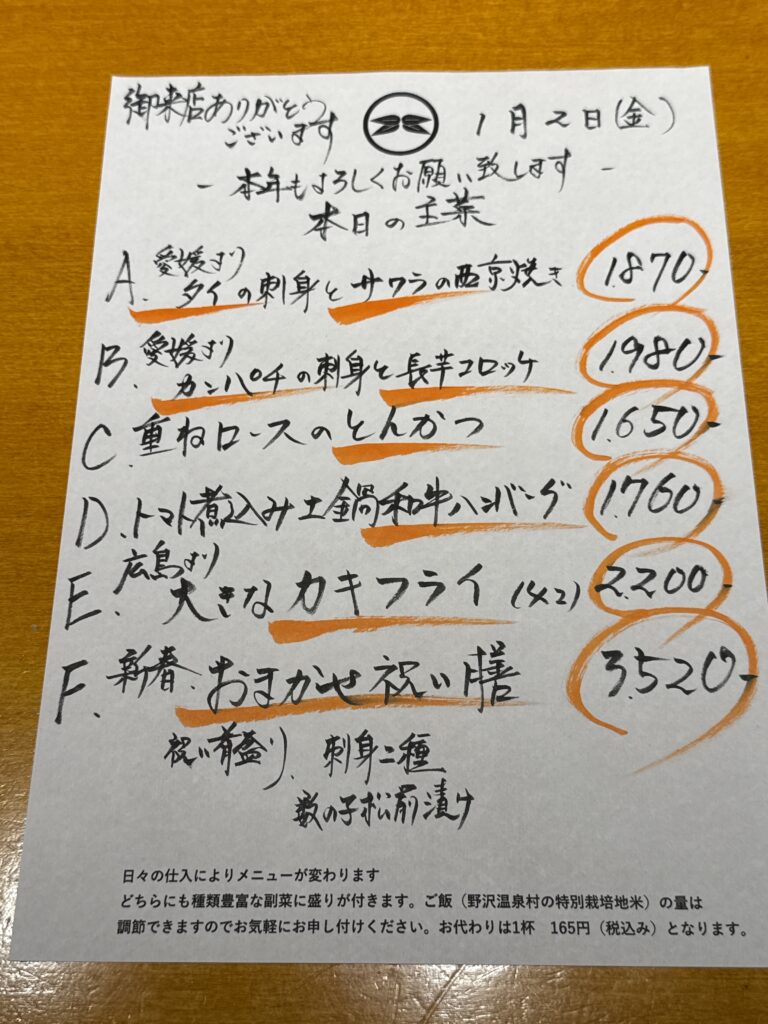 御来店ありがとう
ございます
1月2日(金)
- 本年もよろしくお願い致します -
本日の主菜
A. 愛媛より
タイの刺身とサワラの西京焼き 1.870-
B. 愛媛より
カンパチの刺身と長芋コロッケ 1.980-
C. 重ねロースのとんかつ 1.650-
D. トマト煮込み土鍋和牛ハンバーグ 1.760-
広島より
E. 大きなカキフライ (4コ) 2.200-
F. 新春.おまかせ祝い膳 3.520-
祝い肴盛り. 刺身二種
数の子松前漬け
日々の仕入によりメニューが変わります
どちらにも種類豊富な副菜に盛りが付きます。ご飯(野沢温泉村の特別栽培地米)の量は
調節できますのでお気軽にお申し付けください。お代わりは1杯 165円(税込み)となります。